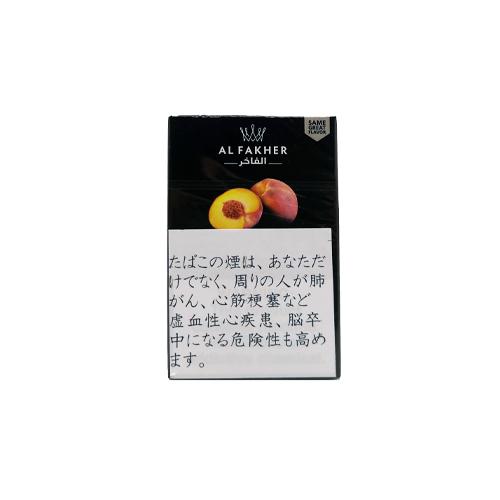 SAME
GREAT
FLAVOR
AL FAKHER
الفاخر
たばこの煙は、あなただ
けでなく、周りの人が肺
がん、心筋梗塞など
虚血性心疾患、脳卒
中になる危険性も高め
ます。